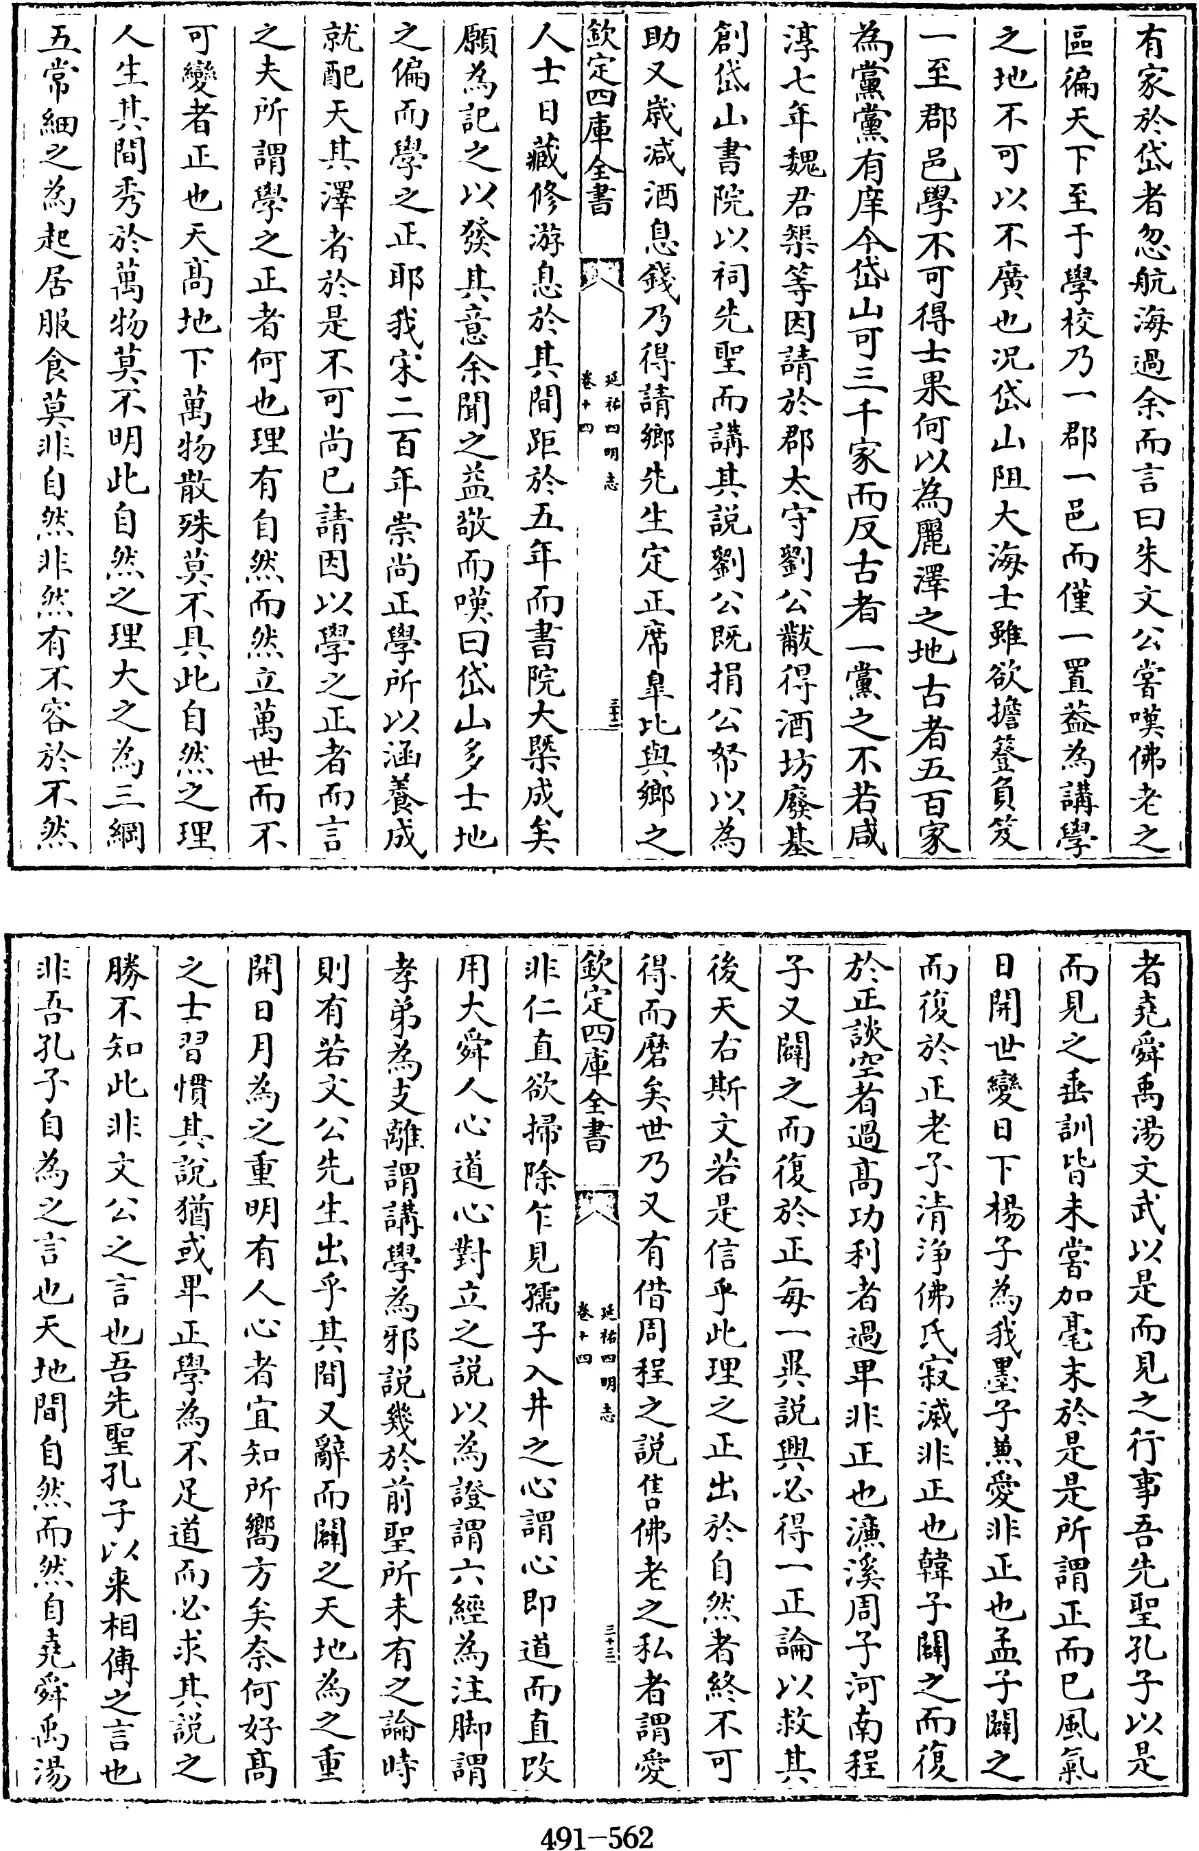 有家於岱者忽航海過余而言曰朱文公嘗嘆佛老之
區徧天下至于學校乃一郡一邑而僅一置葢為講學
之地不可以不廣也况岱山阻大海士雖欲擔簦負笈
一至郡邑學不可得士果何以為麗澤之地古者五百家
為黨黨有庠今岱山可三千家而反古者一黨之不若咸
淳七年魏君榘等因請於郡太守劉公黻得酒坊廢基
創岱山書院以祠先聖而講其説劉公既捐公帑以為
助又歲减酒息錢乃得請鄉先生定正席臯比與鄉之
欽定四庫全書
延祐四明志
卷十四
三十二
人士日藏修游息於其間距於五年而書院大槩成矣
願為記之以發其意余聞之益敬而嘆曰岱山多士地
之偏而學之正耶我宋二百年崇尚正學所以涵養成
就配天其澤者於是不可尚已請因以學之正者而言
之夫所謂學之正者何也理有自然而然立萬世而不
可變者正也天高地下萬物散殊莫不具此自然之理
人生其間秀於萬物莫不明此自然之理大之為三綱
五常細之為起居服食莫非自然非然有不容於不然
者堯舜禹湯文武以是而見之行事吾先聖孔子以是
而見之垂訓皆未嘗加毫末於是是所謂正而已風氣
日開世變日下楊子為我墨子兼愛非正也孟子闢之
而復於正老子清浄佛氏寂滅非正也韓子闢之而復
於正談空者過高功利者過卑非正也濂溪周子河南程
子又闢之而復於正每一異説興必得一正論以救其
後天右斯文若是信乎此理之正出於自然者終不可
得而磨矣世乃又有借周程之説售佛老之私者謂愛
欽定四庫全書
延祐四明志
卷十四
三十三
非仁直欲掃除乍見孺子入井之心謂心即道而直改
用大舜人心道心對立之説以為證謂六經為注脚謂
孝弟為支離謂講學為邪説幾於前聖所未有之論時
則有若文公先生出乎其間又辭而闢之天地為之重
開日月為之重明有人心者宜知所嚮方矣奈何好高
之士習慣其説猶或卑正學為不足道而必求其説之
勝不知此非文公之言也吾先聖孔子以來相傳之言也
非吾孔子自為之言也天地間自然而然自堯舜禹湯
491-562